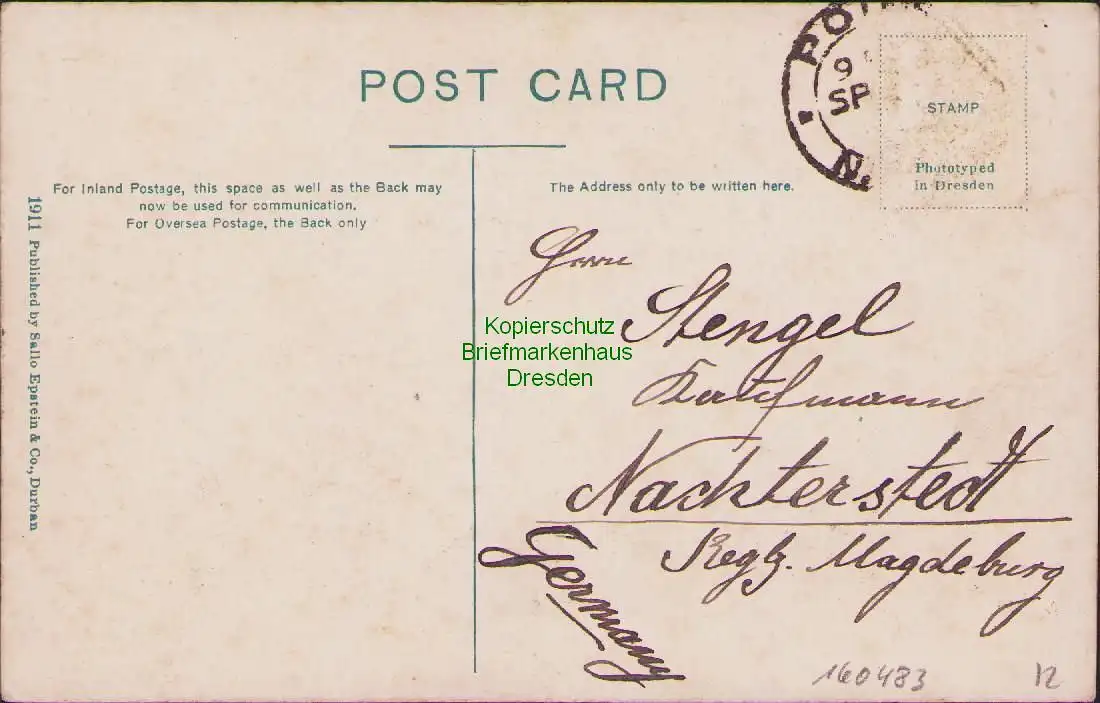 POST CARD
For Inland Postage, this space as well as the Back may
now be used for communication.
For Oversea Postage, the Back only
The Address only to be written here.
STAMP
Phototyped
in Dresden
9
SP
N.
1911 Published by Sallo Epstein & Co., Durban
Herrn
Stengel
Kaufmann
Nachterstedt
Regbz. Magdeburg
Germany
Kopierschutz
Briefmarkenhaus
Dresden
160483
12